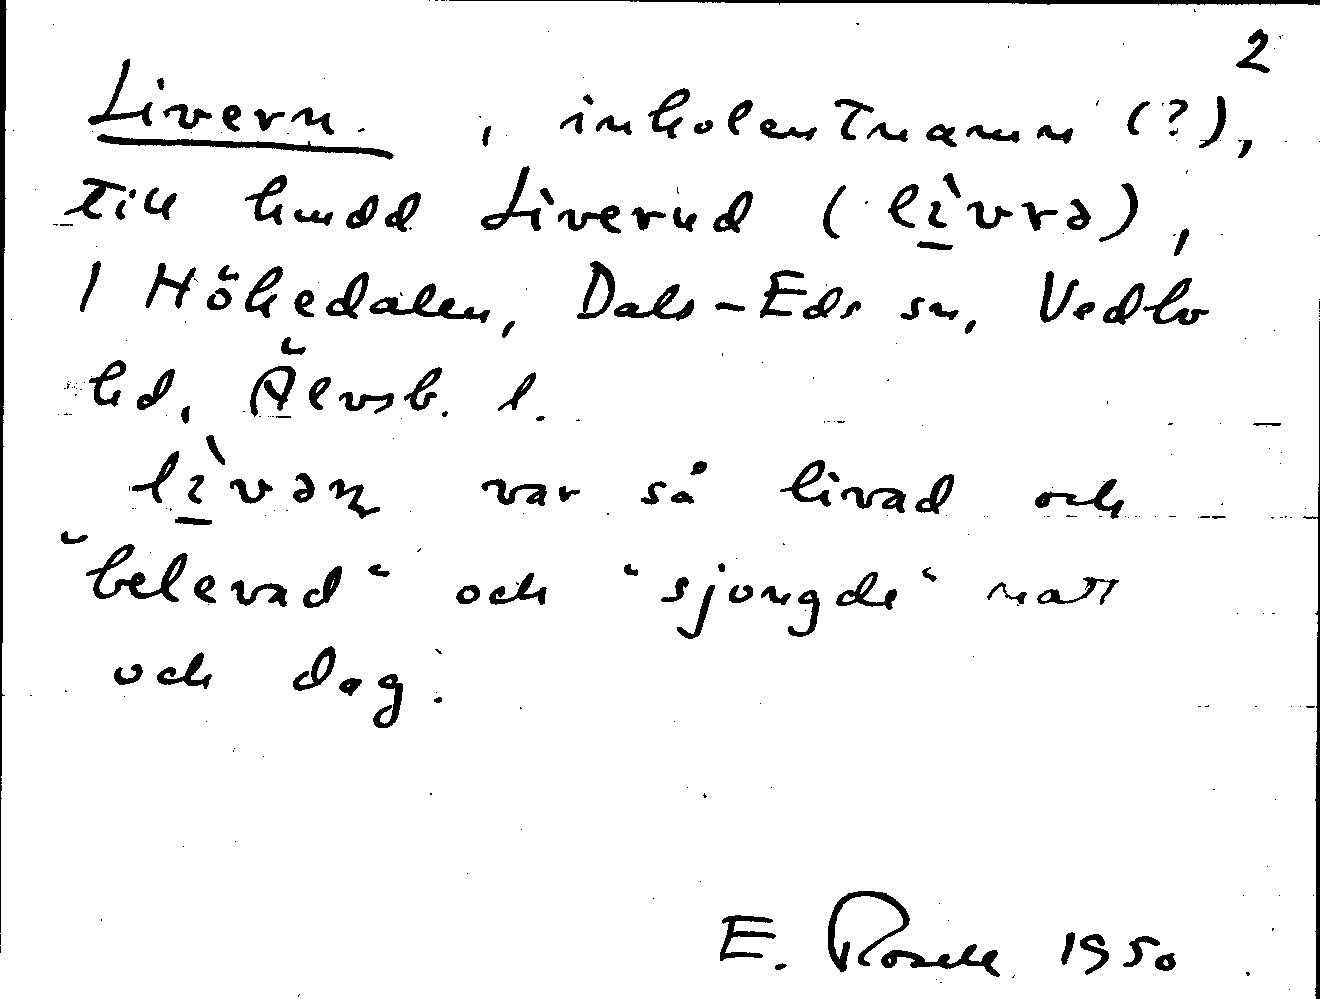 2
Livern , inkolentnamn (?),
till hmdd Liverud (lìvrə),
i Hökedalen, Dals-Eds sn, Vedbo
hd, Älvsb. l.
lìvəɳ var så livad och
"belevad" och "sjongde" natt
och dag.
E. Rosell 1950